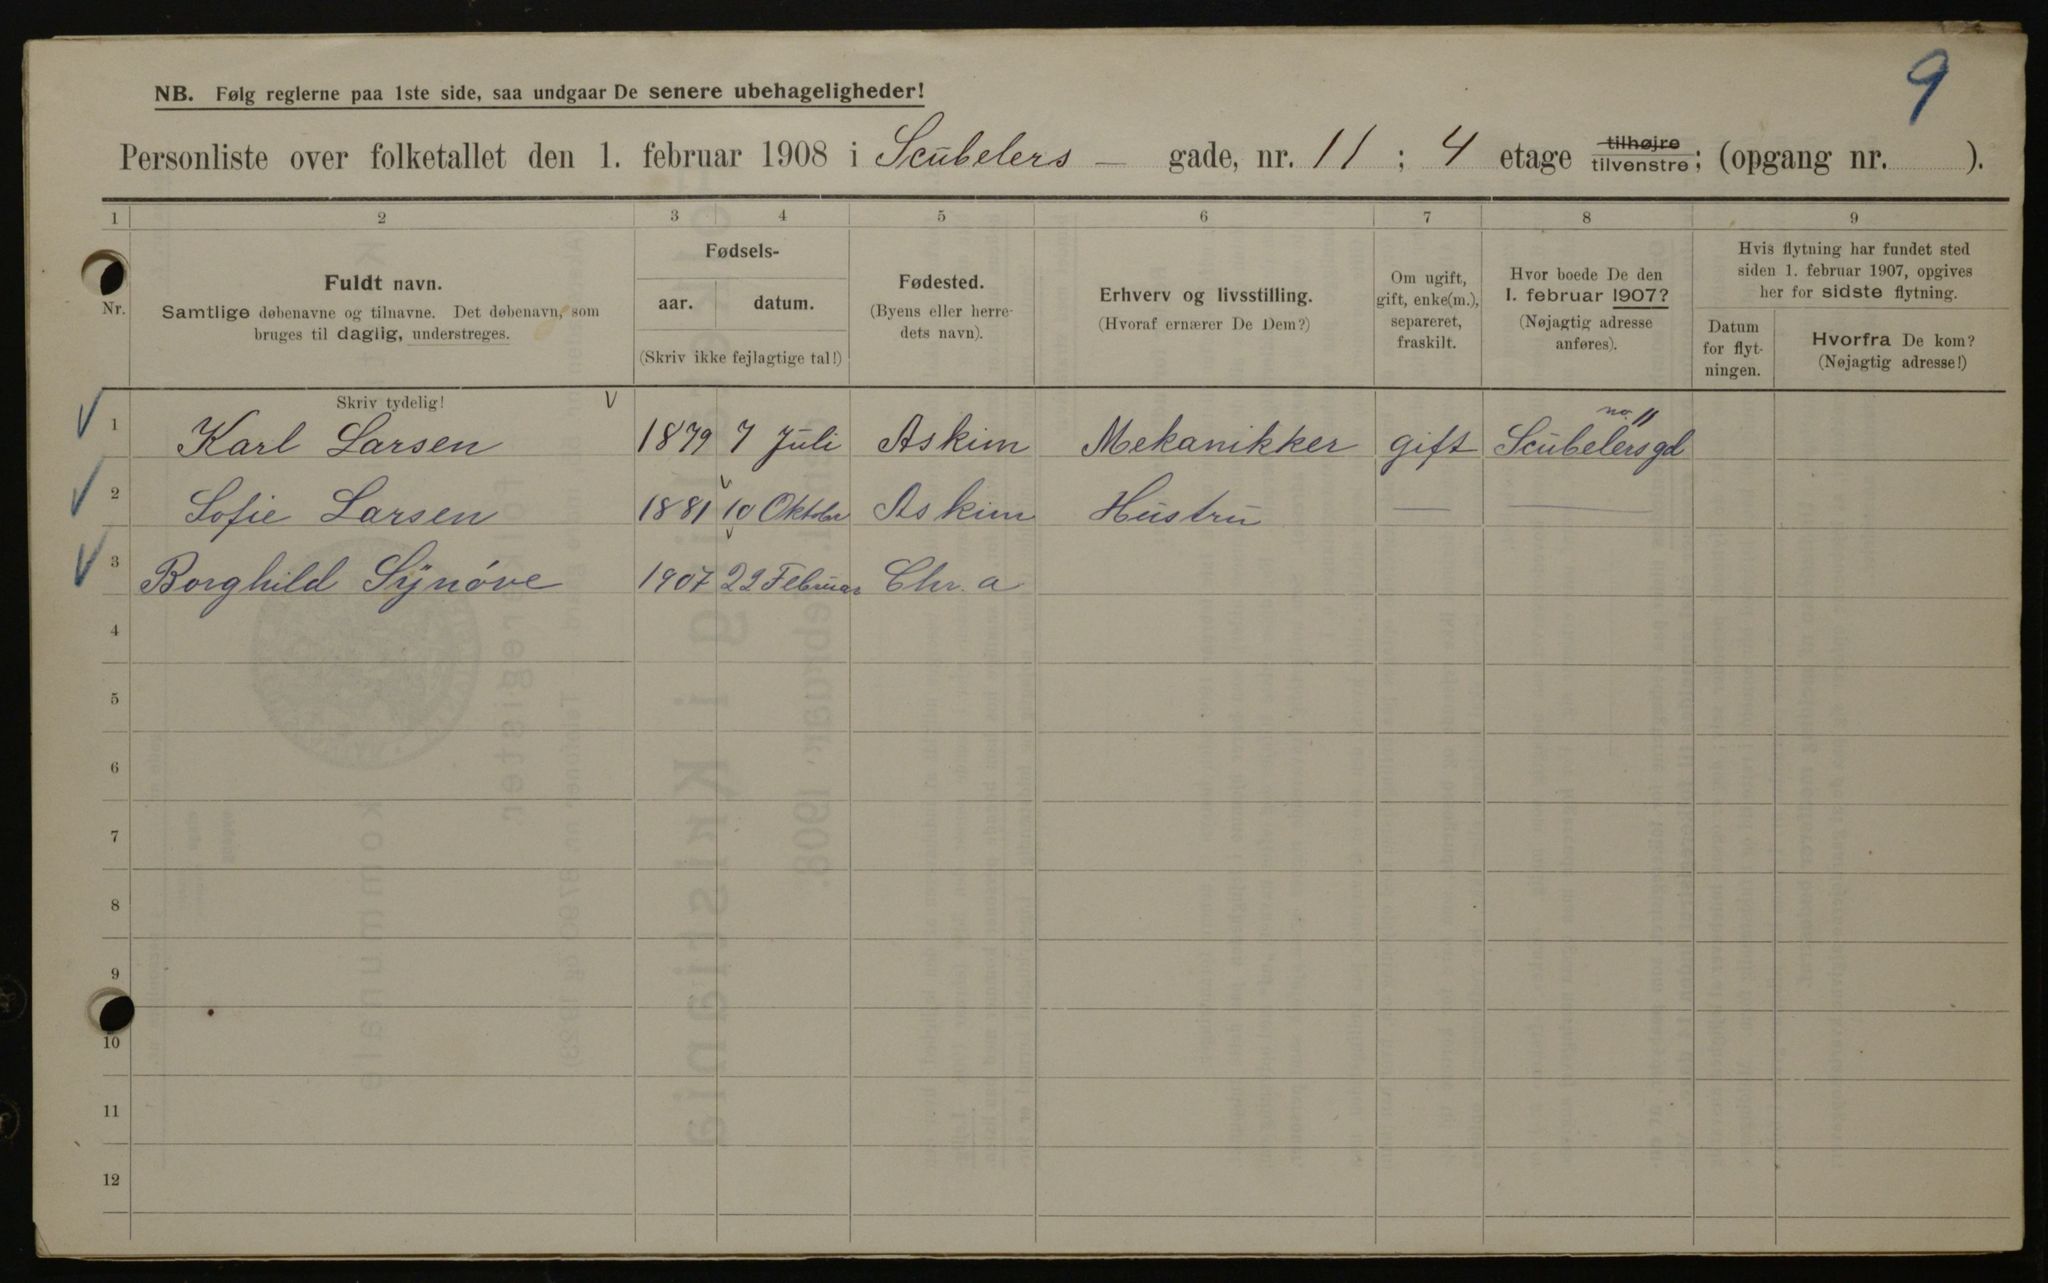 9
NB. Følg reglerne paa 1ste side, saa undgaar De senere ubehageligheder!
Personliste over folketallet den 1. februar 1908 i Scubelers — gade, nr. 11 ; 4 etage tilhøjre tilvenstre; (opgang nr. ).
1 2 3 4 5 6 7 8 9
Nr.
Fuldt navn.
Samtlige døbenavne og tilnavne. Det døbenavn, som
bruges til daglig, understreges.
Fødsels-
aar. datum.
(Skriv ikke fejlagtige tal!)
Fødested.
(Byens eller herre-
dets navn).
Erhverv og livsstilling.
(Hvoraf ernærer De Dem?)
Om ugift,
gift, enke(m.),
separeret,
fraskilt.
Hvor boede De den
1. februar 1907?
(Nøjagtig adresse
anføres).
Hvis flytning har fundet sted
siden 1. februar 1907, opgives
her for sidste flytning.
Datum
for flyt-
ningen.
Hvorfra De kom?
(Nøjagtig adresse!)
Skriv tydelig!
1 Karl Larsen 1879 7 Juli Askim Mekanikker gift Scubelersgd no. 11
2 Sofie Larsen 1881 10 Oktober Askim Hustru — —
3 Borghild Synöve 1907 22 Februar Chr. a
4
5
6
7
8
9
10
11
12